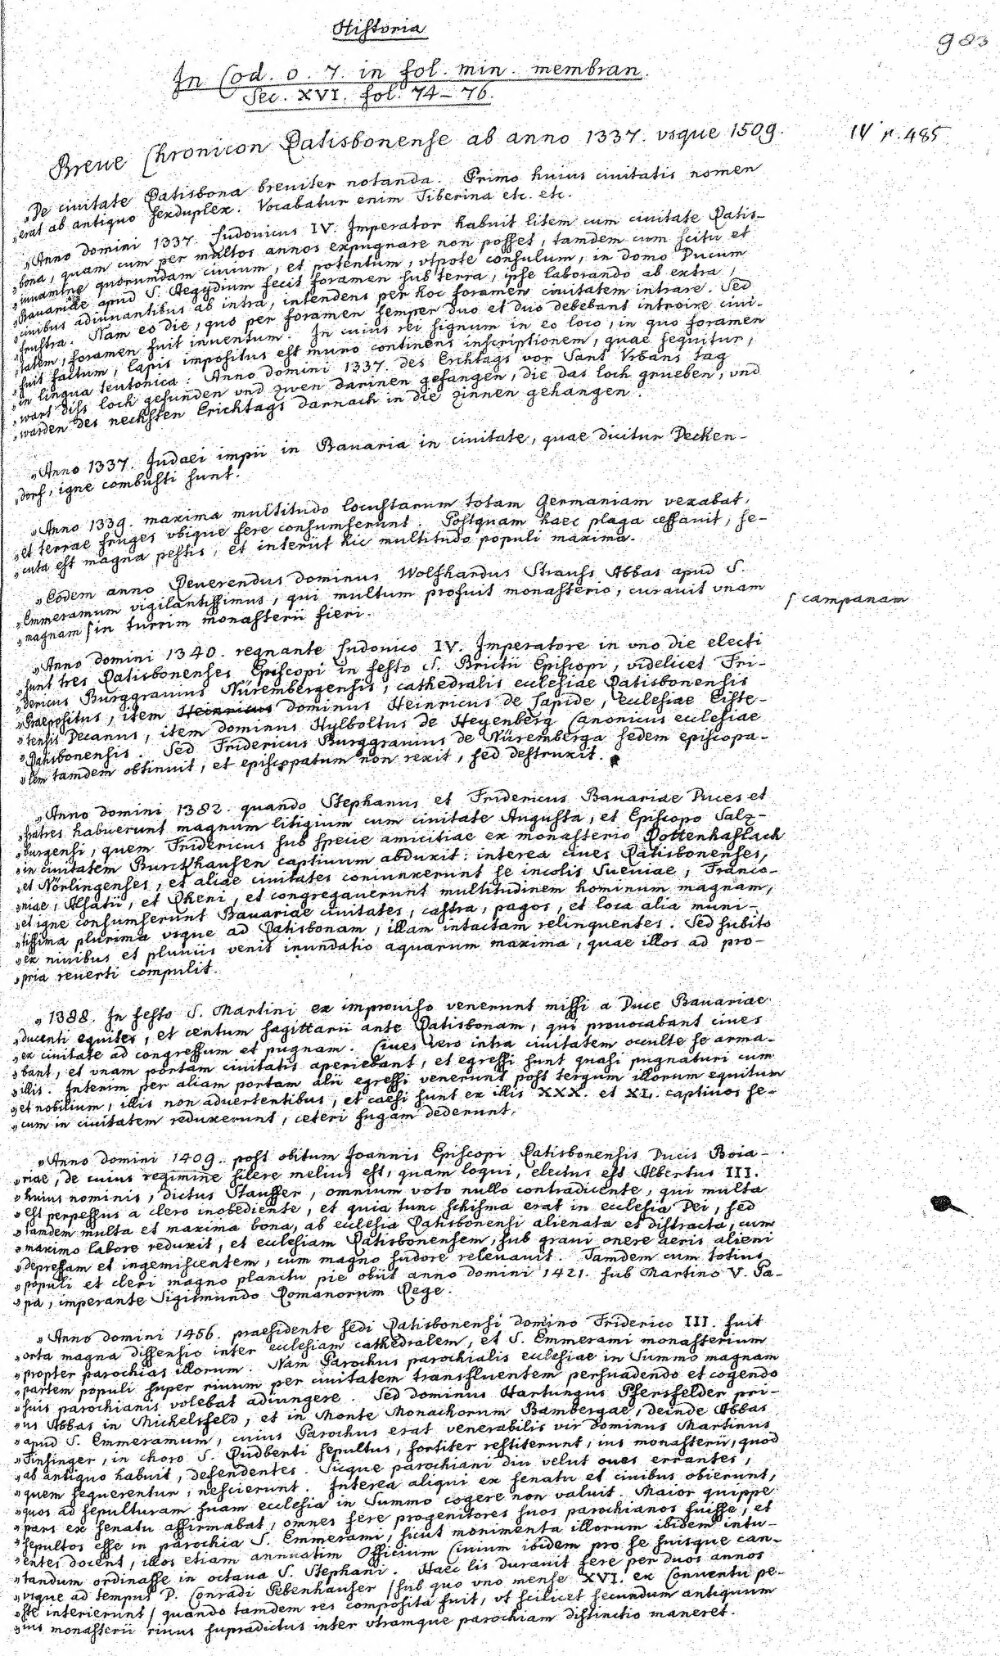 Historia
983
In Cod. o. 7. in fol. min. membran.
Sec. XVI. fol. 74–76.
Breve Chronicon Ratisbonense ab anno 1337. vsque 1509.
IV r. 485
„De ciuitate Ratisbona breuiter notanda. Primo huius ciuitatis nomen
„erat ab antiquo sexduplex. Vocabatur enim Tiberina etc. etc.
„Anno domini 1337. Ludouicus IV. Imperator habuit litem cum ciuitate Ratis-
„bona, quam cum per multos annos expugnare non posset, tamdem cum scitu et
„iuuamine quorumdam ciuium, et potentum, vtpote consulum, in domo Ducum
„Bauariae apud S. Aegydium fecit foramen sub terra, ipse laborando ab extra,
„ciuibus adiuuantibus ab intra, intendens per hoc foramen ciuitatem intrare. Sed
„frustra. Nam eo die, quo per foramen semper duo et duo debebant introire ciui-
„tatem, foramen fuit inuentum. In cuius rei signum in eo loco, in quo foramen
„fuit factum, lapis impositus est muro continens inscriptionem, quae sequitur,
„in lingua teutonica: Anno domini 1337. des Erchtags vor Sant Vrbans tag
„wart diss loch gefunden vnd zwen darinen gefangen, die das loch grueben, vnd
„warden des nechsten Erichtags darnach in die zinnen gehangen.
„Anno 1337. Judaei impii in Bauaria in ciuitate, quae dicitur Decken-
„dorf, igne combusti sunt.
„Anno 1339. maxima multitudo locustarum totam Germaniam vexabat,
„et terrae fruges vbique fere consumserunt. Postquam haec plaga cessauit, se-
„cuta est magna pestis, et interiit hic multitudo populi maxima.
„Eodem anno Reuerendus dominus Wolfhardus Strauss Abbas apud S.
„Emmeramum vigilantissimus, qui multum profuit monasterio, curauit vnam
„magnam ſ in turrim monasterii fieri.
ſ campanam
„Anno domini 1340. regnante Ludouico IV. Imperatore in vno die electi
„sunt tres Ratisbonenses Episcopi in festo S. Brictii Episcopi, videlicet Fri-
„dericus Burggrauius Nürembergensis, cathedralis ecclesiae Ratisbonensis
„Praepositus, item Heinricus dominus Heinricus de Lapide, ecclesiae Eiste-
„tensis Decanus, item dominus Hylboltus de Heyenberg Canonicus ecclesiae
„Ratisbonensis. Sed Fridericus Burggrauius de Nüremberga sedem episcopa-
„lem tamdem obtinuit, et episcopatum non rexit, sed destruxit.
„Anno domini 1382. quando Stephanus et Fridericus Bauariae Duces et
„fratres habuerunt magnum litigium cum ciuitate Augusta, et Episcopo Salz-
„burgensi, quem Fridericus sub specie amicitiae ex monasterio Rottenhaslach
„in ciuitatem Burckhausen captiuum abduxit: interea ciues Ratisbonenses,
„et Nörlingenses, et aliae ciuitates coniunxerunt se incolis Sueuiae, Franco-
„niae, Alsatii, et Rheni, et congregauerunt multitudinem hominum magnam,
„et igne consumserunt Bauariae ciuitates, castra, pagos, et loca alia muni-
„tissima plurima vsque ad Ratisbonam, illam intactam relinquentes. Sed subito
„ex niuibus et pluuiis venit inundatio aquarum maxima, quae illos ad pro-
„pria reuerti compulit.
„1388. In festo S. Martini ex improuiso venerunt missi a Duce Bauariae
„ducenti equites, et centum sagittarii ante Ratisbonam, qui prouocabant ciues
„ex ciuitate ad congressum et pugnam. Ciues vero intra ciuitatem occulte se arma-
„bant, et vnam portam ciuitatis aperiebant, et egressi sunt quasi pugnaturi cum
„illis. Interim per aliam portam alii egressi venerunt post tergum illorum equitum
„et nobilium, illis non aduertentibus, et caesi sunt ex illis XXX. et XL. captiuos se-
„cum in ciuitatem reduxerunt, ceteri fugam dederunt.
„Anno domini 1409. post obitum Joannis Episcopi Ratisbonensis Ducis Boia-
„riae, de cuius regimine silere melius est, quam loqui, electus est Albertus III.
„huius nominis, dictus Stauffer, omnium voto nullo contradicente, qui multa
„est perpessus a clero inobediente, et quia tunc schisma erat in ecclesia Dei, sed
„tamdem multa et maxima bona, ab ecclesia Ratisbonensi alienata et distracta, cum
„maximo labore reduxit, et ecclesiam Ratisbonensem, sub graui onere aeris alieni
„depressam et ingemiscentem, cum magno sudore releuauit. Tamdem cum totius
„populi et cleri magno planctu pie obiit anno domini 1421. sub Martino V. Pa-
„pa, imperante Sigismundo Romanorum Rege.
„Anno domini 1456. praesidente sedi Ratisbonensi domino Friderico III. fuit
„orta magna dissensio inter ecclesiam cathedralem, et S. Emmerami monasterium
„propter parochias illorum. Nam Parochus parochialis ecclesiae in Summo magnam
„partem populi super riuum per ciuitatem transfluentem persuadendo et cogendo
„suis parochianis volebat adiungere. Sed dominus Hartungus Pfersfelder pri-
„us Abbas in Michelsfeld, et in Monte Monachorum Bambergae, deinde Abbas
„apud S. Emmeramum, cuius Parochus erat venerabilis vir dominus Martinus
„Tinfinger, in choro S. Rudberti sepultus, fortiter restiterunt, ius monasterii, quod
„ab antiquo habuit, defendentes. Sicque parochiani diu velut oues errantes,
„quem sequerentur, nescierunt. Interea aliqui ex senatu et ciuibus obierunt,
„quos ad sepulturam suam ecclesia in Summo cogere non valuit. Maior quippe
„pars ex senatu affirmabat, omnes fere progenitores suos parochianos fuisse, et
„sepultos esse in parochia S. Emmerami, sicut monimenta illorum ibidem intu-
„entes docent, illos etiam annuatim Officium Ciuium ibidem pro se suisque can-
„tandum ordinasse in octaua S. Stephani. Haec lis durauit fere per duos annos
„vsque ad tempus D. Conradi Pebenhauser / sub quo vno mense XVI. ex Conuentu pe-
„ste interierunt / quando tamdem res composita fuit, vt scilicet secundum antiquum
„ius monasterii riuus supradictus inter vtramque parochiam distinctio maneret.